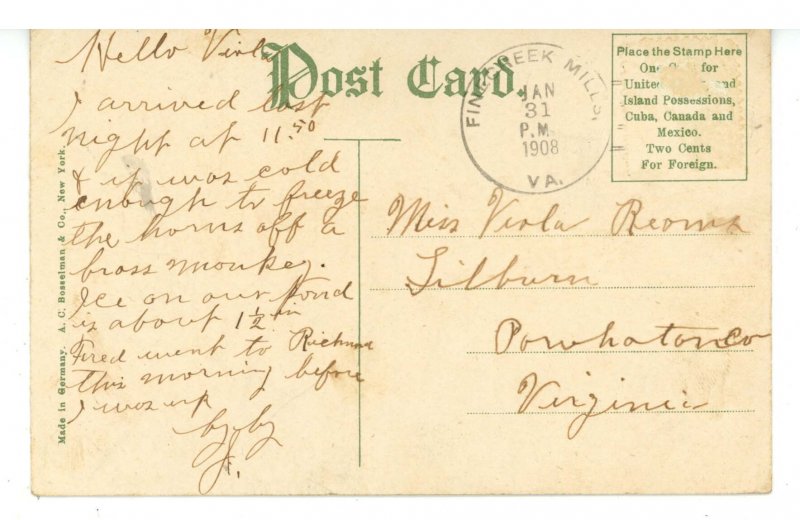 Hello Viola
I arrived last
night at 11.50
& it was cold
enough to freeze
the horns off a
brass monkey.
Ice on our Pond
is about 1 1/2 in
Fred went to Richmd
this morning before
I was up
by by
J.
Made in Germany. A. C. Bosselman & Co., New York.
Post Card.
FINE CREEK MILLS,
JAN
31
P.M.
1908
VA.
Place the Stamp Here
for
and
Island Possessions,
Cuba, Canada and
Mexico.
Two Cents
For Foreign.
Miss Viola
Powhatan Co
Virginia